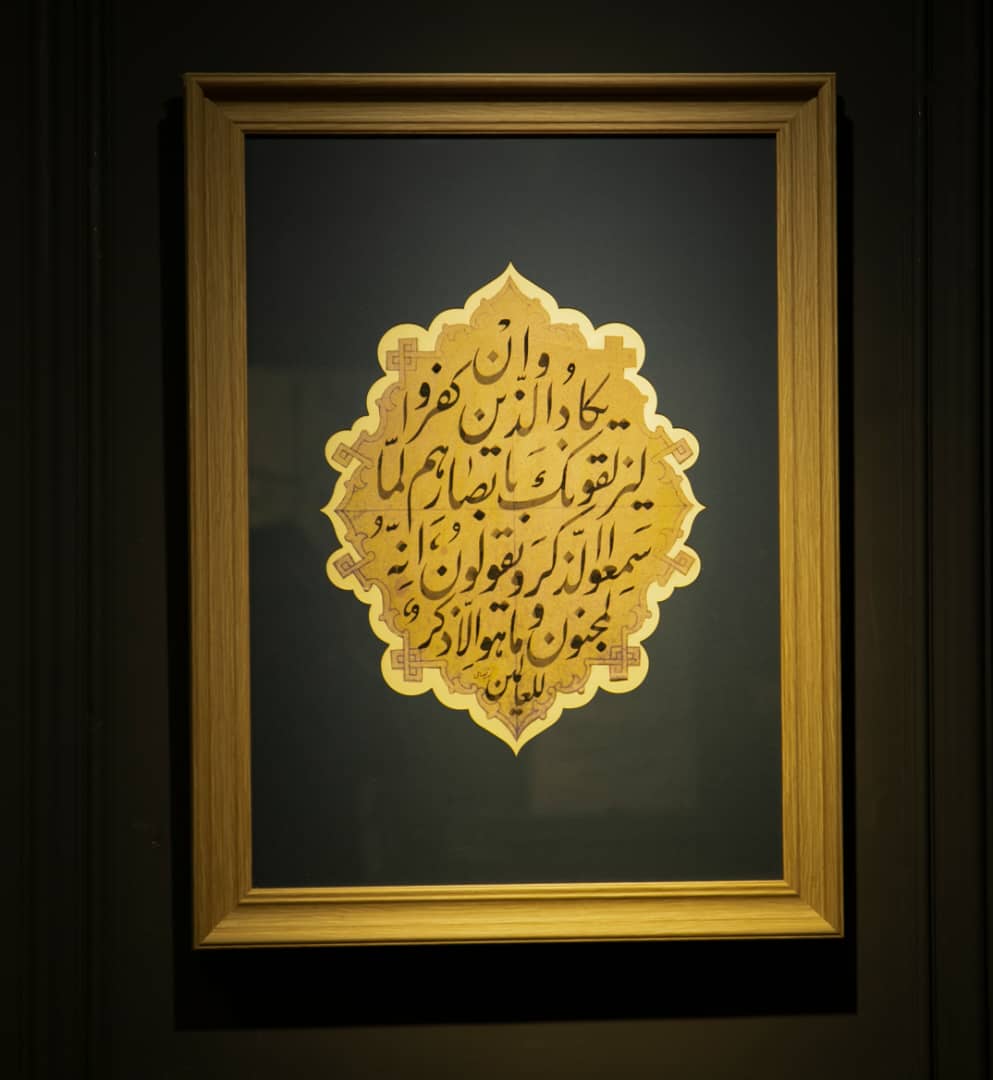 وإنْ
يكادُ الذّين كفروا
ليزلقونك بابصارهم لمّا
سَمِعوا الذّكرَ ويقولونُ، اَنِّهُ
لمجنون وما هو اِلّا ذكرٌ
للعالمین